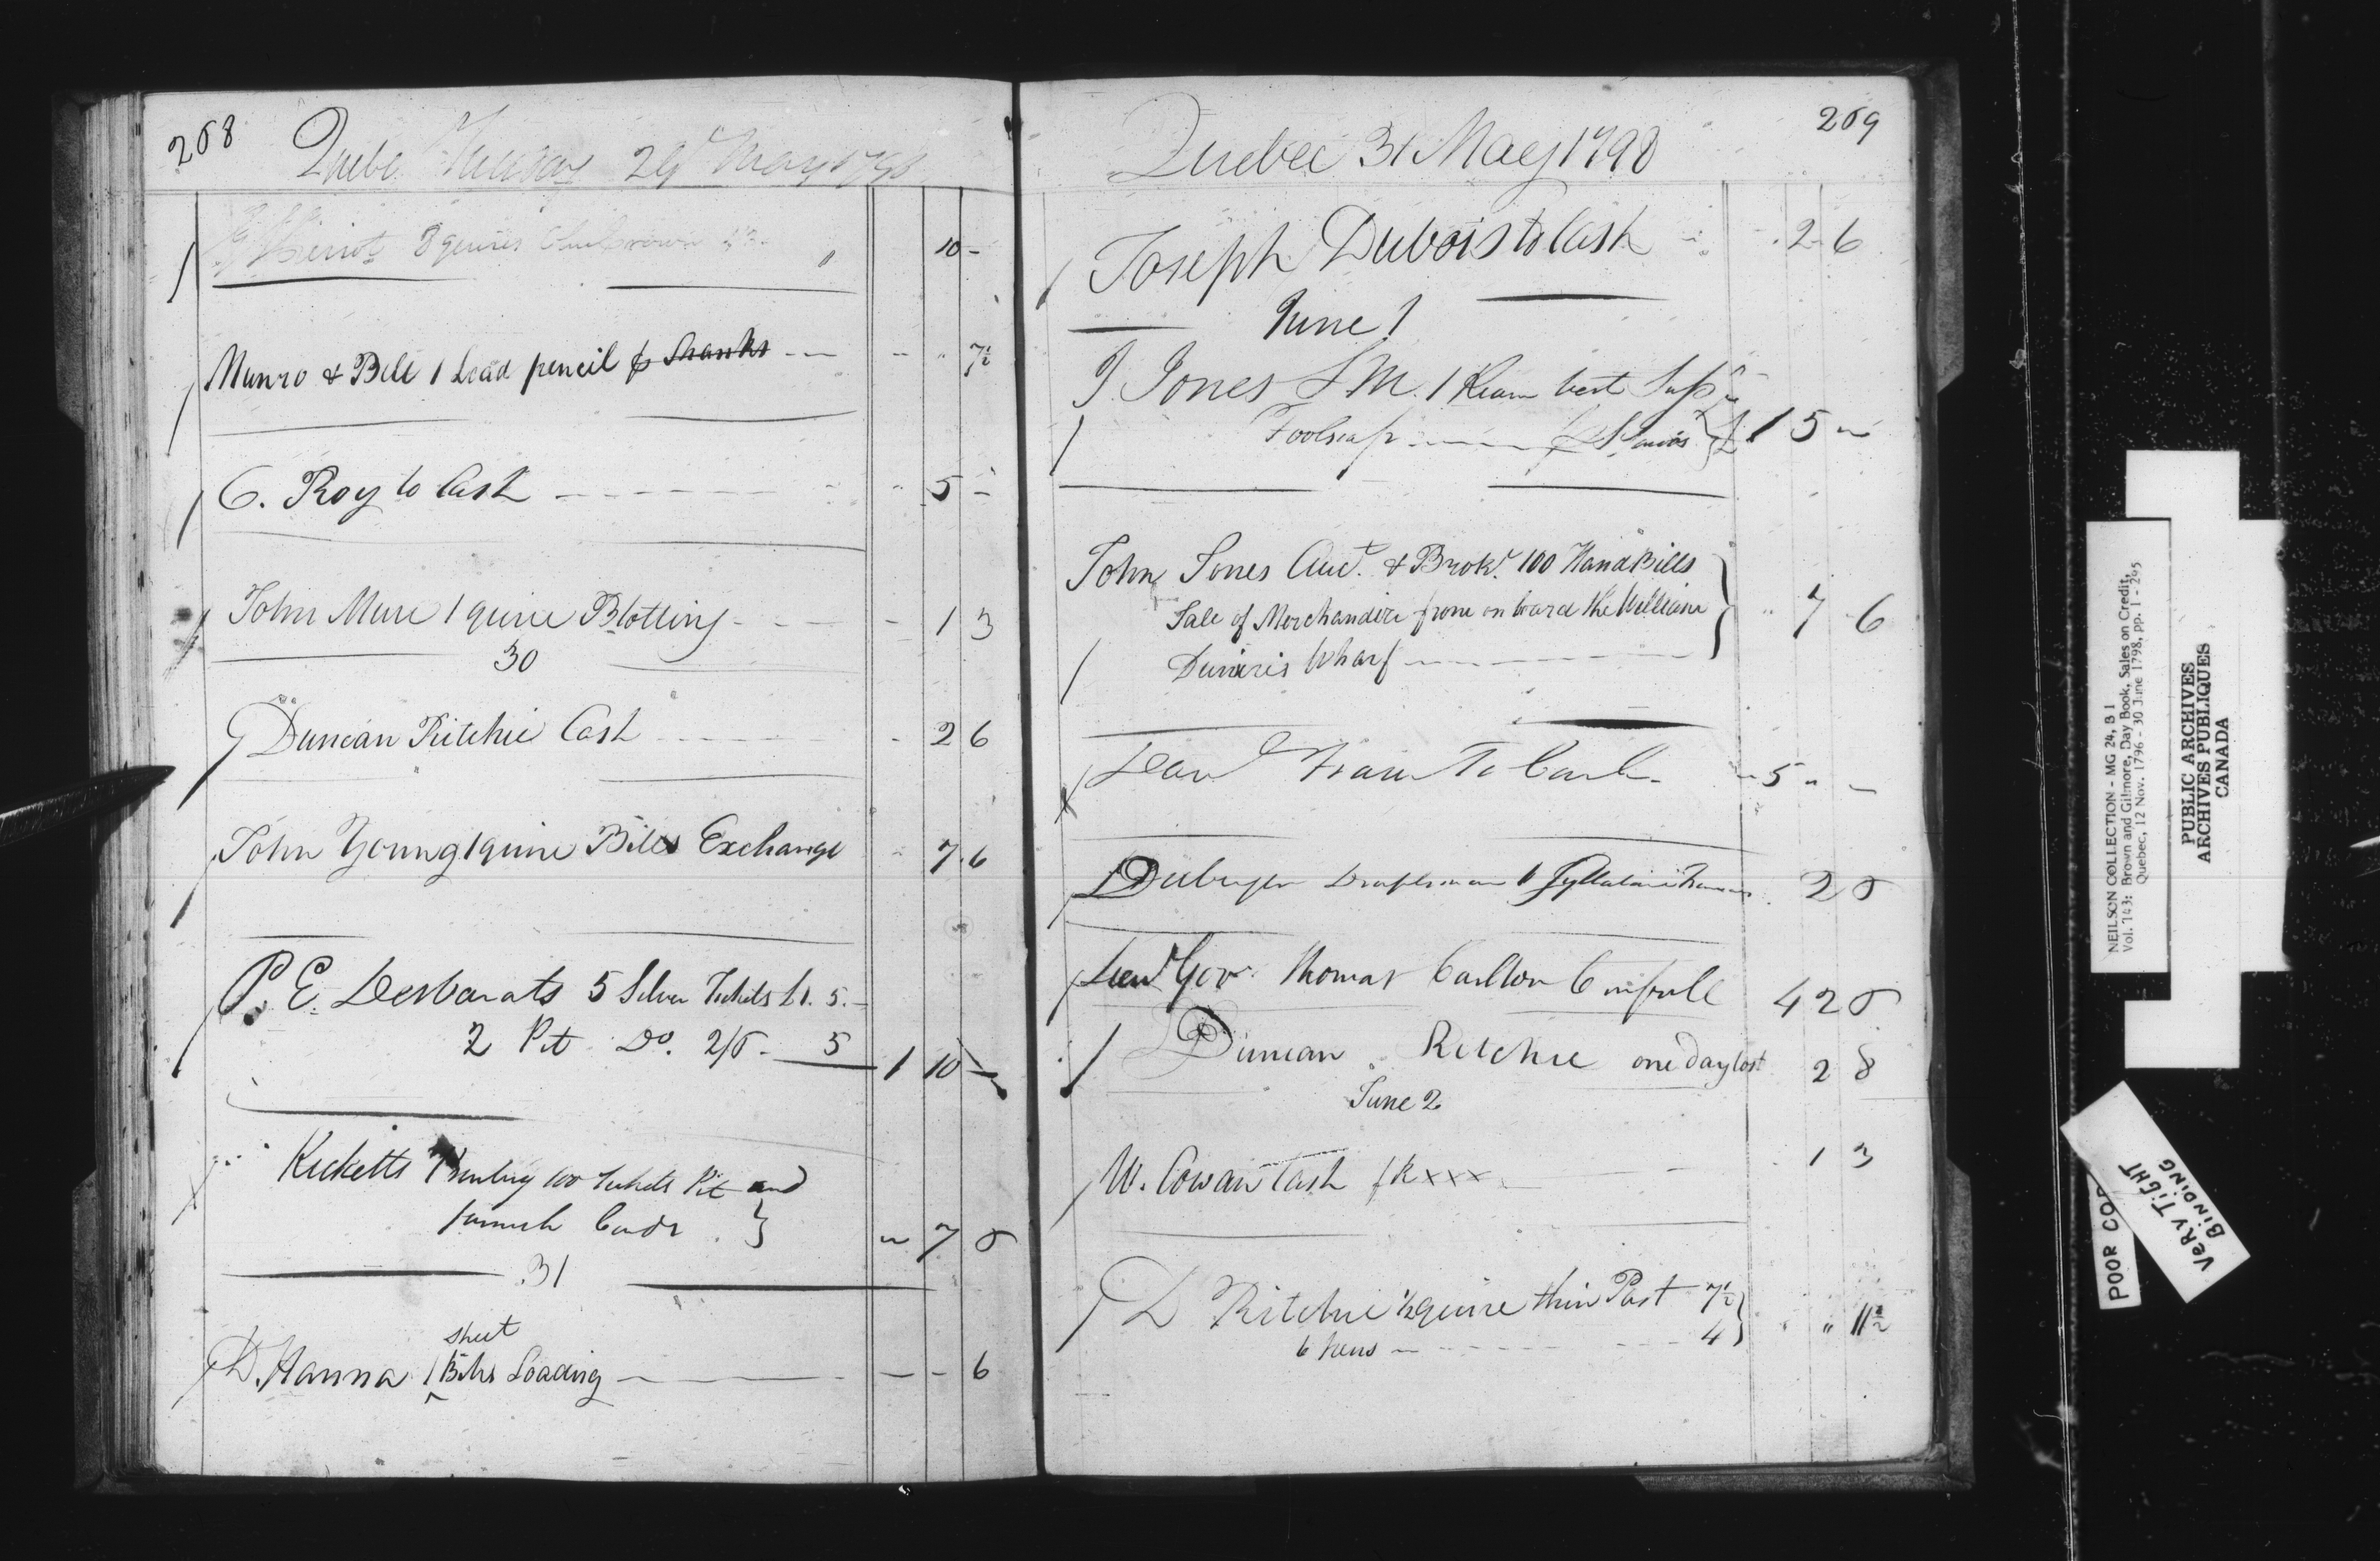 268
Quebec Tuesday 29 May 1798
Heriot 8 quires
10 -
Munro & Bell 1 Lead pencil p Shanks
7½
C. Roy to Cash
5 -
John Mure 1 quire Blotting
1 3
30
Duncan Ritchie Cash
2 6
John Young 1 quire Bills Exchange
7 6
P. E. Desbarats 5 Silver Tickets £1. 5. -
2 Pit Do. 2/6 - 5
1 10 -
Ricketts Printing 100 Tickets Pit and
Cards
7 6
31
sheet
D. Hanna 1 ^ Bills Loading
- - 6
269
Quebec 31 May 1798
Joseph Dubois to Cash
2 6
June 1
J. Jones S M. 1 Ream best Supr
Foolscap
1 5
John Jones Auct. & Brokr. 100 Hand Bills
Sale of Merchandize from on board the William
Wharf
7 6
To Cash
5
Duberger Draftsman 1
2 6
Lieut Gov. Thomas Carlton
4 2 6
Duncan Ritchie one day lost
2 8
June 2
W. Cowan Cash
1 3
D Ritchie ½ quire thin Post 7½
6 Pens 4
11½
NEILSON COLLECTION - MG 24, B 1
Vol. 143: Brown and Gilmore, Day Book, Sales on Credit,
Quebec, 12 Nov. 1796 - 30 June 1798, pp. 1 - 295
PUBLIC ARCHIVES
ARCHIVES PUBLIQUES
CANADA
POOR
VERY TIGHT
BINDING